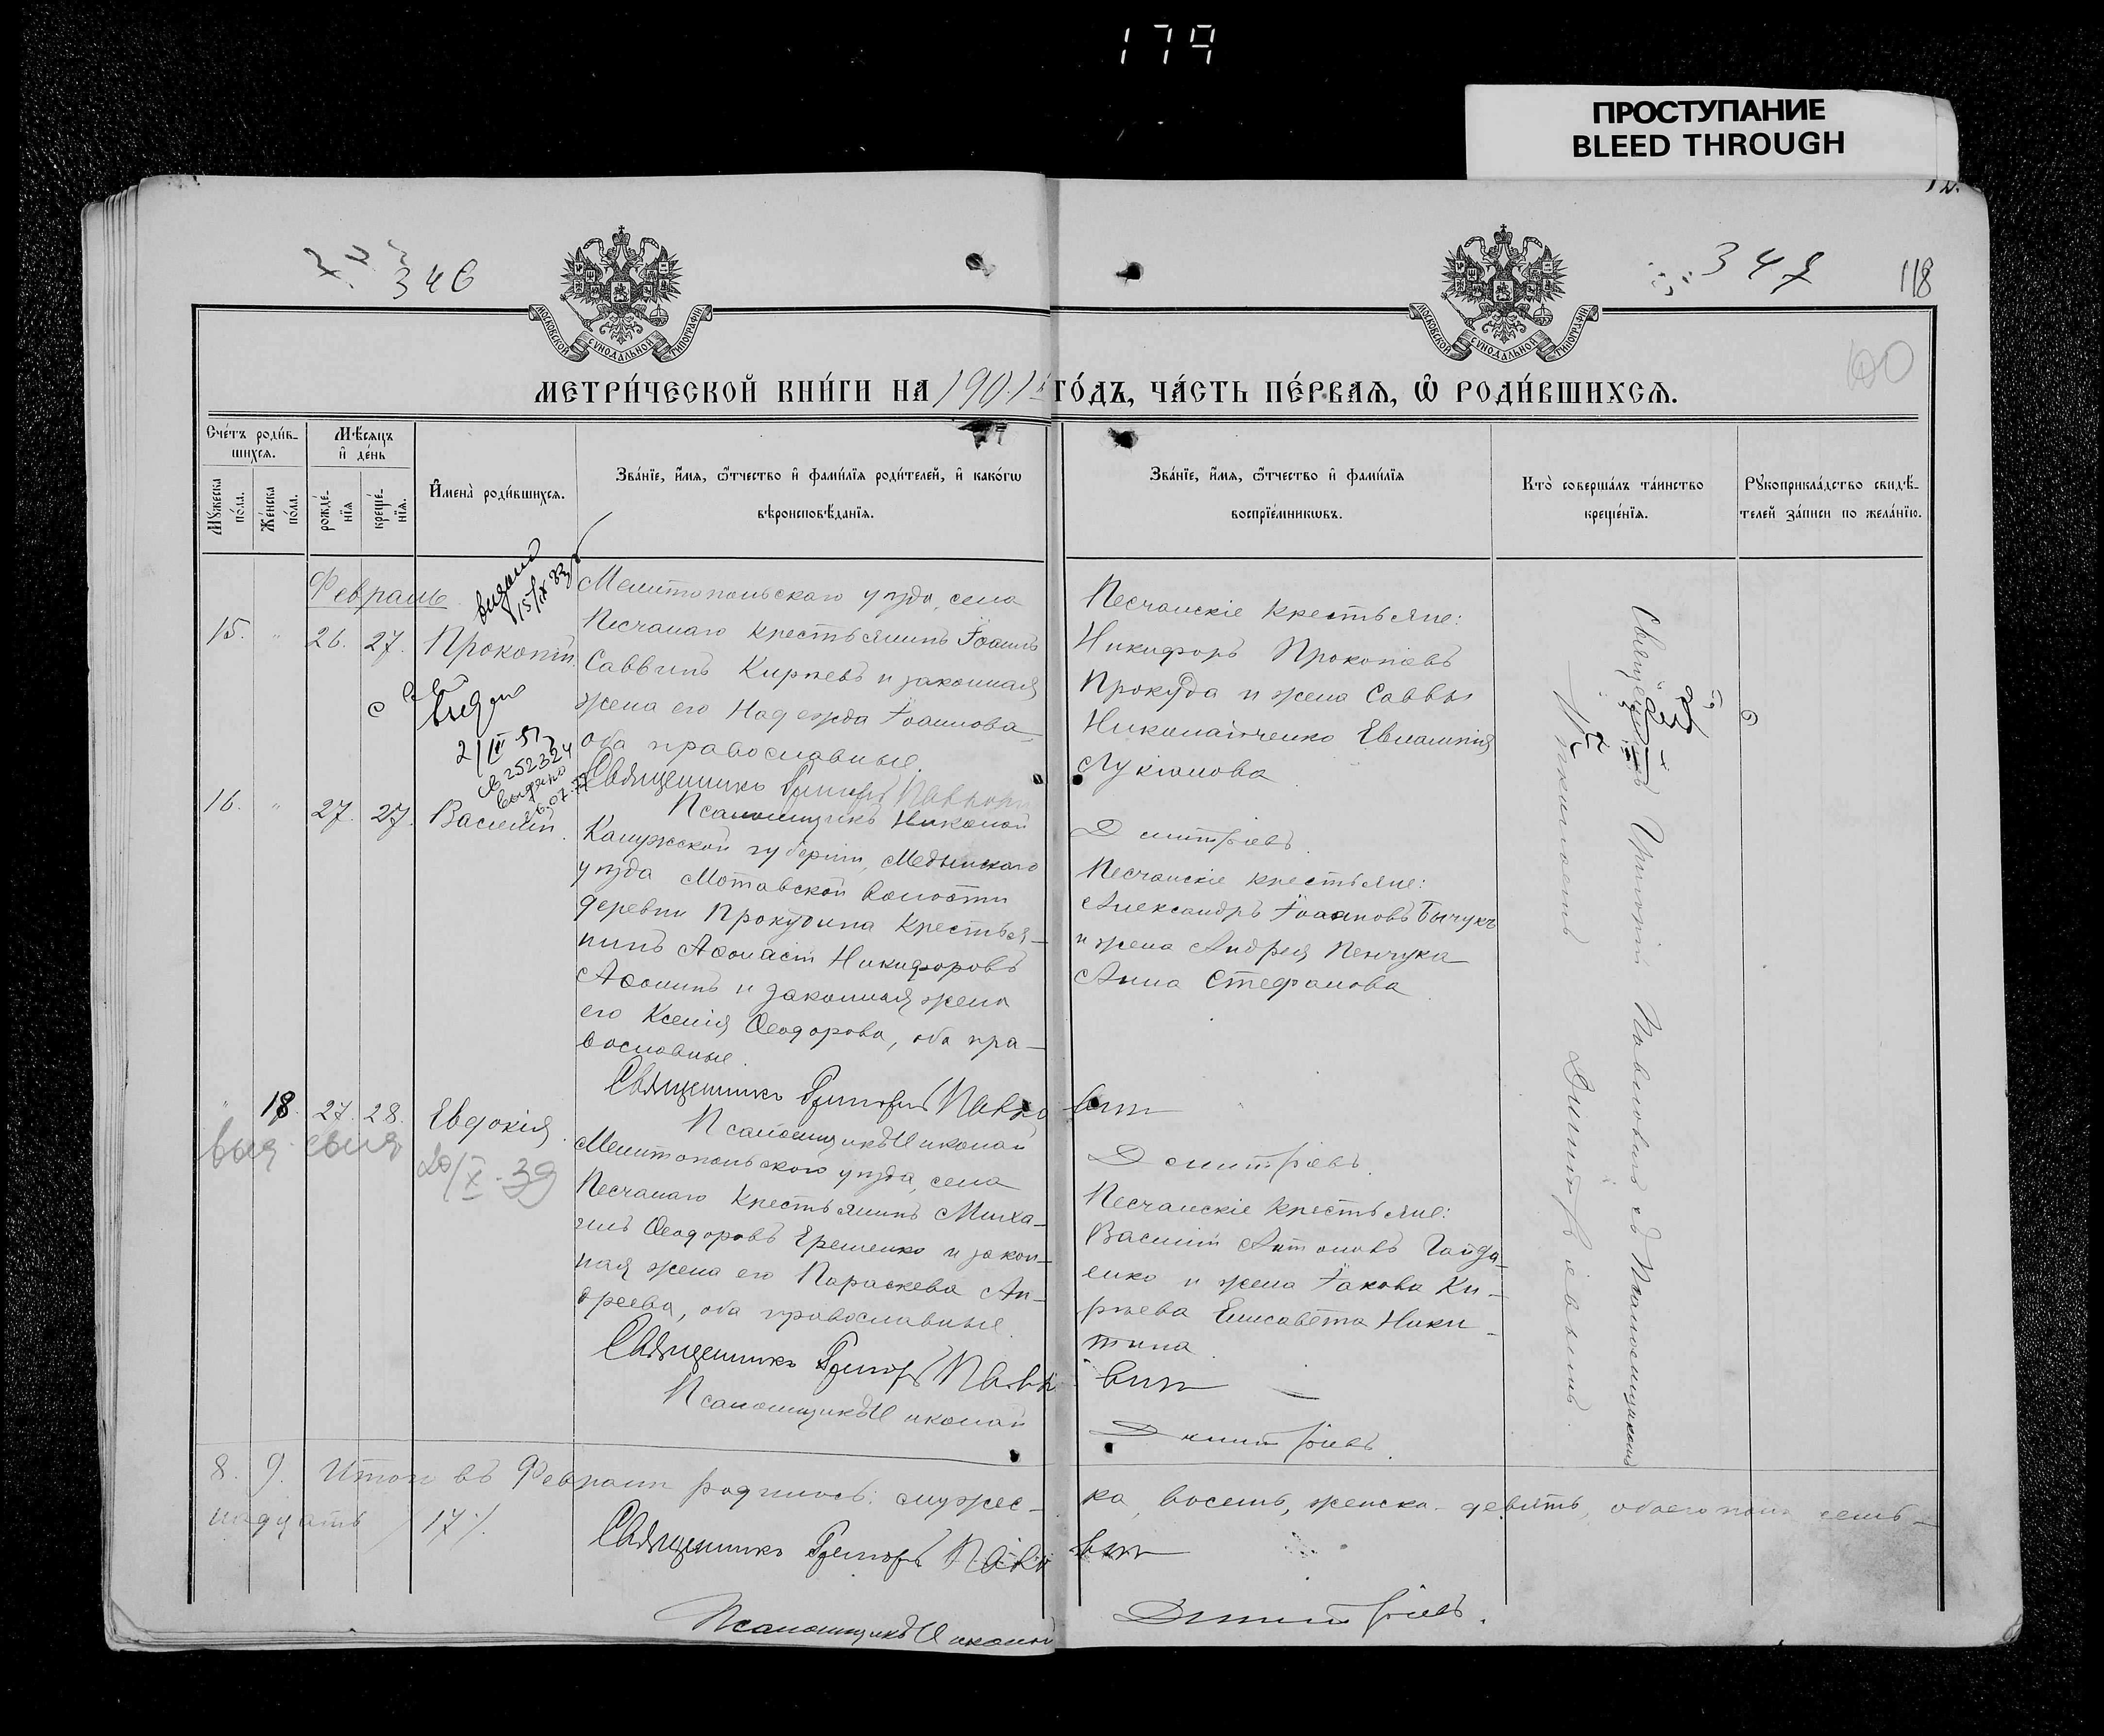 179
ПРОСТУПАНИЕ
BLEED THROUGH
346
347
118
100
МОСКОВСКОЙ СѴНОДАЛЬНОЙ ТИПОГРАФІИ
МОСКОВСКОЙ СѴНОДАЛЬНОЙ ТИПОГРАФІИ
МЕТРИ́ЧЕСКОЙ КНИ́ГИ НА 1901 й ГО́ДЪ, ЧА́СТЬ ПЕ́РВАѦ, Ѡ҆ РОДИ́ВШИХСѦ.
Сче́тъ роди́в-
шихсѧ.
Мѣ́сѧцъ
и҆ де́нь
Мꙋ́жеска по́ла.
Же́нска по́ла.
рожде́-
нїѧ
креще́-
нїѧ.
И҆мена̀ роди́вшихсѧ.
Зва́нїе, и҆́мѧ, ѻ҆́тчество и҆ фами́лїѧ роди́телей, и҆ како́гѡ
вѣроисповѣ́данїѧ.
Зва́нїе, и҆́мѧ, ѻ҆́тчество и҆ фами́лїѧ
воспрїе́мникѡвъ.
Кто̀ соверша́лъ та́инство
креще́нїѧ.
Рꙋкоприкла́дство свидѣ́-
телей за́писи по жела́нїю.
Февраль
выдано
15/IX 33
15. " 26. 27. Прокопій
Мелитопольскаго уѣзда, села
Песчанаго крестьянинъ Іоаннъ
Саввинъ Киріевъ и законная
жена его Надежда Іоаннова
оба православные.
Священникъ Григорій
Псаломщикъ Николай
Песчанскіе крестьяне:
Никифоръ Прокопіевъ
Прокуда и жена Саввы
Николайченко Евлампія
Лукіанова
Дмитріевъ.
252324
выдано
16. " 27. 27. Василій.
Калужской губерніи, Медынскаго
уѣзда Мотавской волости
деревни Прокудина крестья-
нинъ Аѳонасій Никифоровъ
Аѳонинъ и законная жена
его Ксенія Ѳеодорова, оба пра-
вославные.
Священникъ Григорій Павло
Псаломщикъ Николай
Песчанскіе крестьяне:
Александръ Іоанновъ Бычукъ
и жена Андрея Пенчука
Анна Стефанова
Дмитріевъ.
" 18. 27. 28. Евдокія.
20/X-39
Мелитопольскаго уѣзда, села
Песчанаго крестьянинъ Миха-
илъ Ѳеодоровъ Еременко и закон-
ная жена его Параскева Ан-
дреева, оба православные.
Священникъ Григорій Павло
Псаломщикъ Николай
Песчанскіе крестьяне:
Василій Антоновъ Гайда-
енко и жена Іакова Ки-
ріева Елисавета Ники-
тина.
Дмитріевъ.
Священникъ Григорій Павловичъ съ Псаломщикомъ
Николаемъ Дмитріевымъ.
8. 9. Итого въ Февралѣ родилось: мужес-
ка восемь, женска девять, обоего пола семь-
надцать /17/.
Священникъ Григорій
Псаломщикъ Николай
Дмитріевъ.